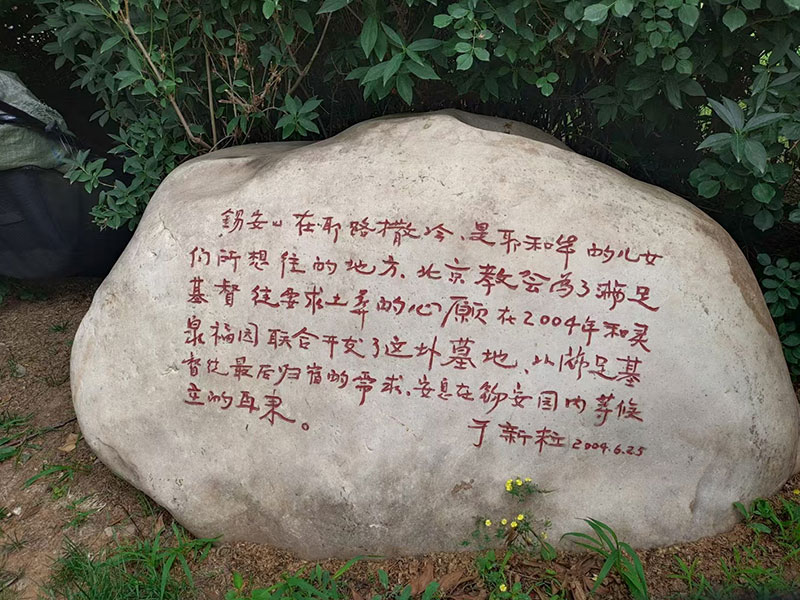 錫安山在耶路撒冷、是耶和华的儿女
们所想往的地方、北京教会為了满足
基督徒要求土葬的心愿在2004年和灵
泉福园联合开发了这块墓地、以满足基
督徒最后归宿的需求、安息在錫安园内等候
主的再来。
于新粒 2004.6.25